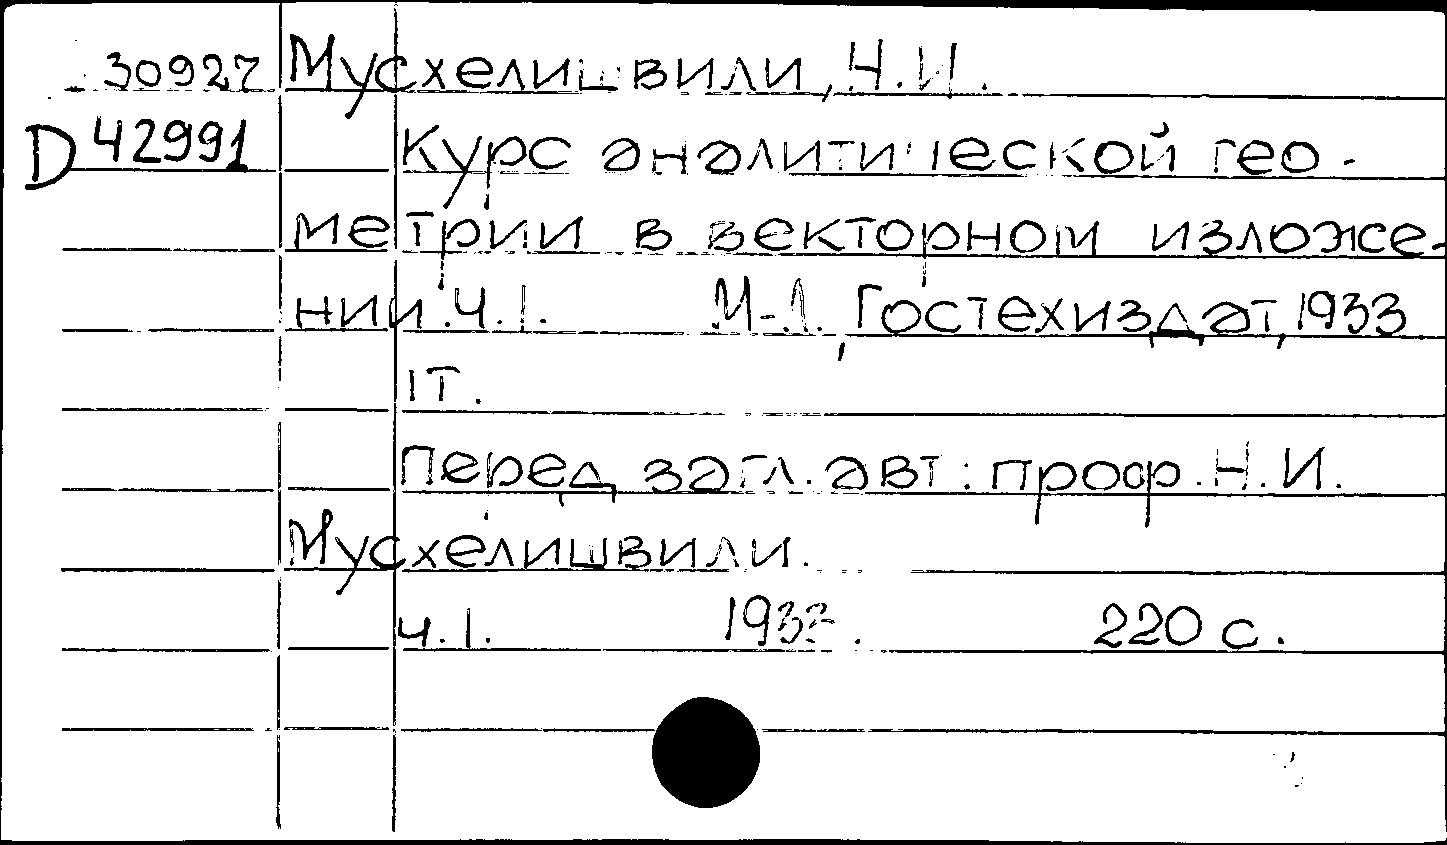 30927 Мусхелишвили, Н.И.
D 42991 Курс аналитической гео-
метрии в векторном изложе-
нии.Ч.1. М-Л., Гостехиздат, 1933
1т.
Перед загл. авт: проф. Н.И.
Мусхелишвили.
ч.1. 1933. 220 с.